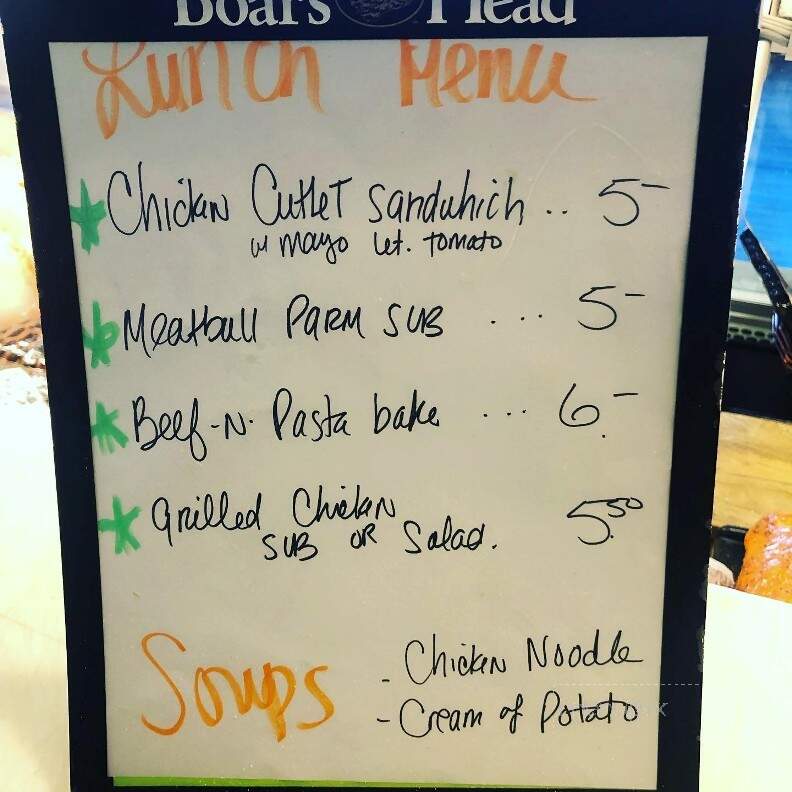 Boar's Head
Lunch Menu
Chicken Cutlet Sandwhich .. 5-
w mayo Let. tomato
Meatball Parm sub .... 5-
Beef-N-Pasta bake ... 6.-
Grilled Chicken 5.50
Sub or Salad.
Soups
- Chicken Noodle
- Cream of Potato